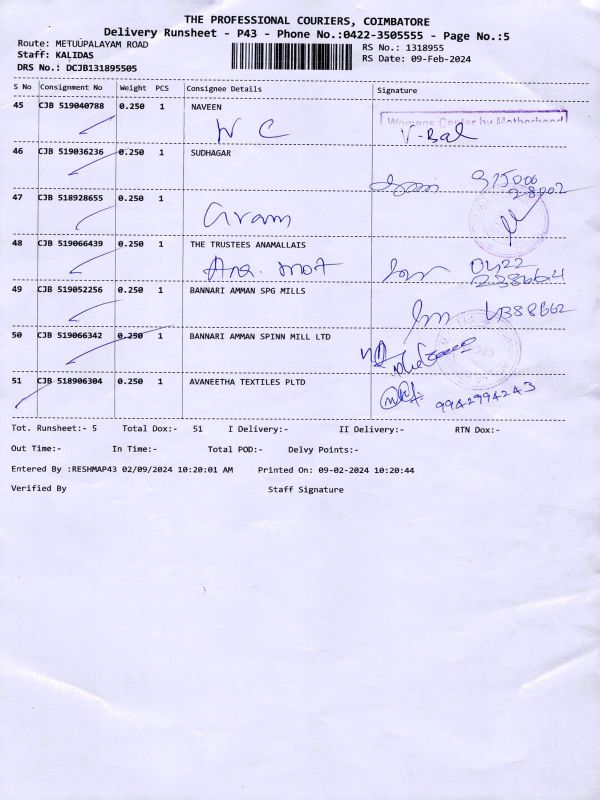 THE PROFESSIONAL COURIERS, COIMBATORE
Delivery Runsheet - P43 - Phone No.:0422-3505555 - Page No.:5
Route: METUUPALAYAM ROAD
RS No.: 1318955
Staff: KALIDAS
RS Date: 09-Feb-2024
DRS No.: DCJB131895505
S No Consignment No Weight PCS Consignee Details Signature
45 CJB 519040788 0.250 1 NAVEEN
Womans Center by Motherhood
W C V-Bal
46 CJB 519036236 0.250 1 SUDHAGAR
47 CJB 518928655 0.250 1
48 CJB 519066439 0.250 1 THE TRUSTEES ANAMALLAIS
0422
49 CJB 519052256 0.250 1 BANNARI AMMAN SPG MILLS
50 CJB 519066342 0.250 1 BANNARI AMMAN SPINN MILL LTD
51 CJB 518906304 0.250 1 AVANEETHA TEXTILES PLTD
9942994243
Tot. Runsheet:- 5 Total Dox:- 51 I Delivery:- II Delivery:- RTN Dox:-
Out Time:- In Time:- Total POD:- Delvy Points:-
Entered By :RESHMAP43 02/09/2024 10:20:01 AM Printed On: 09-02-2024 10:20:44
Verified By Staff Signature